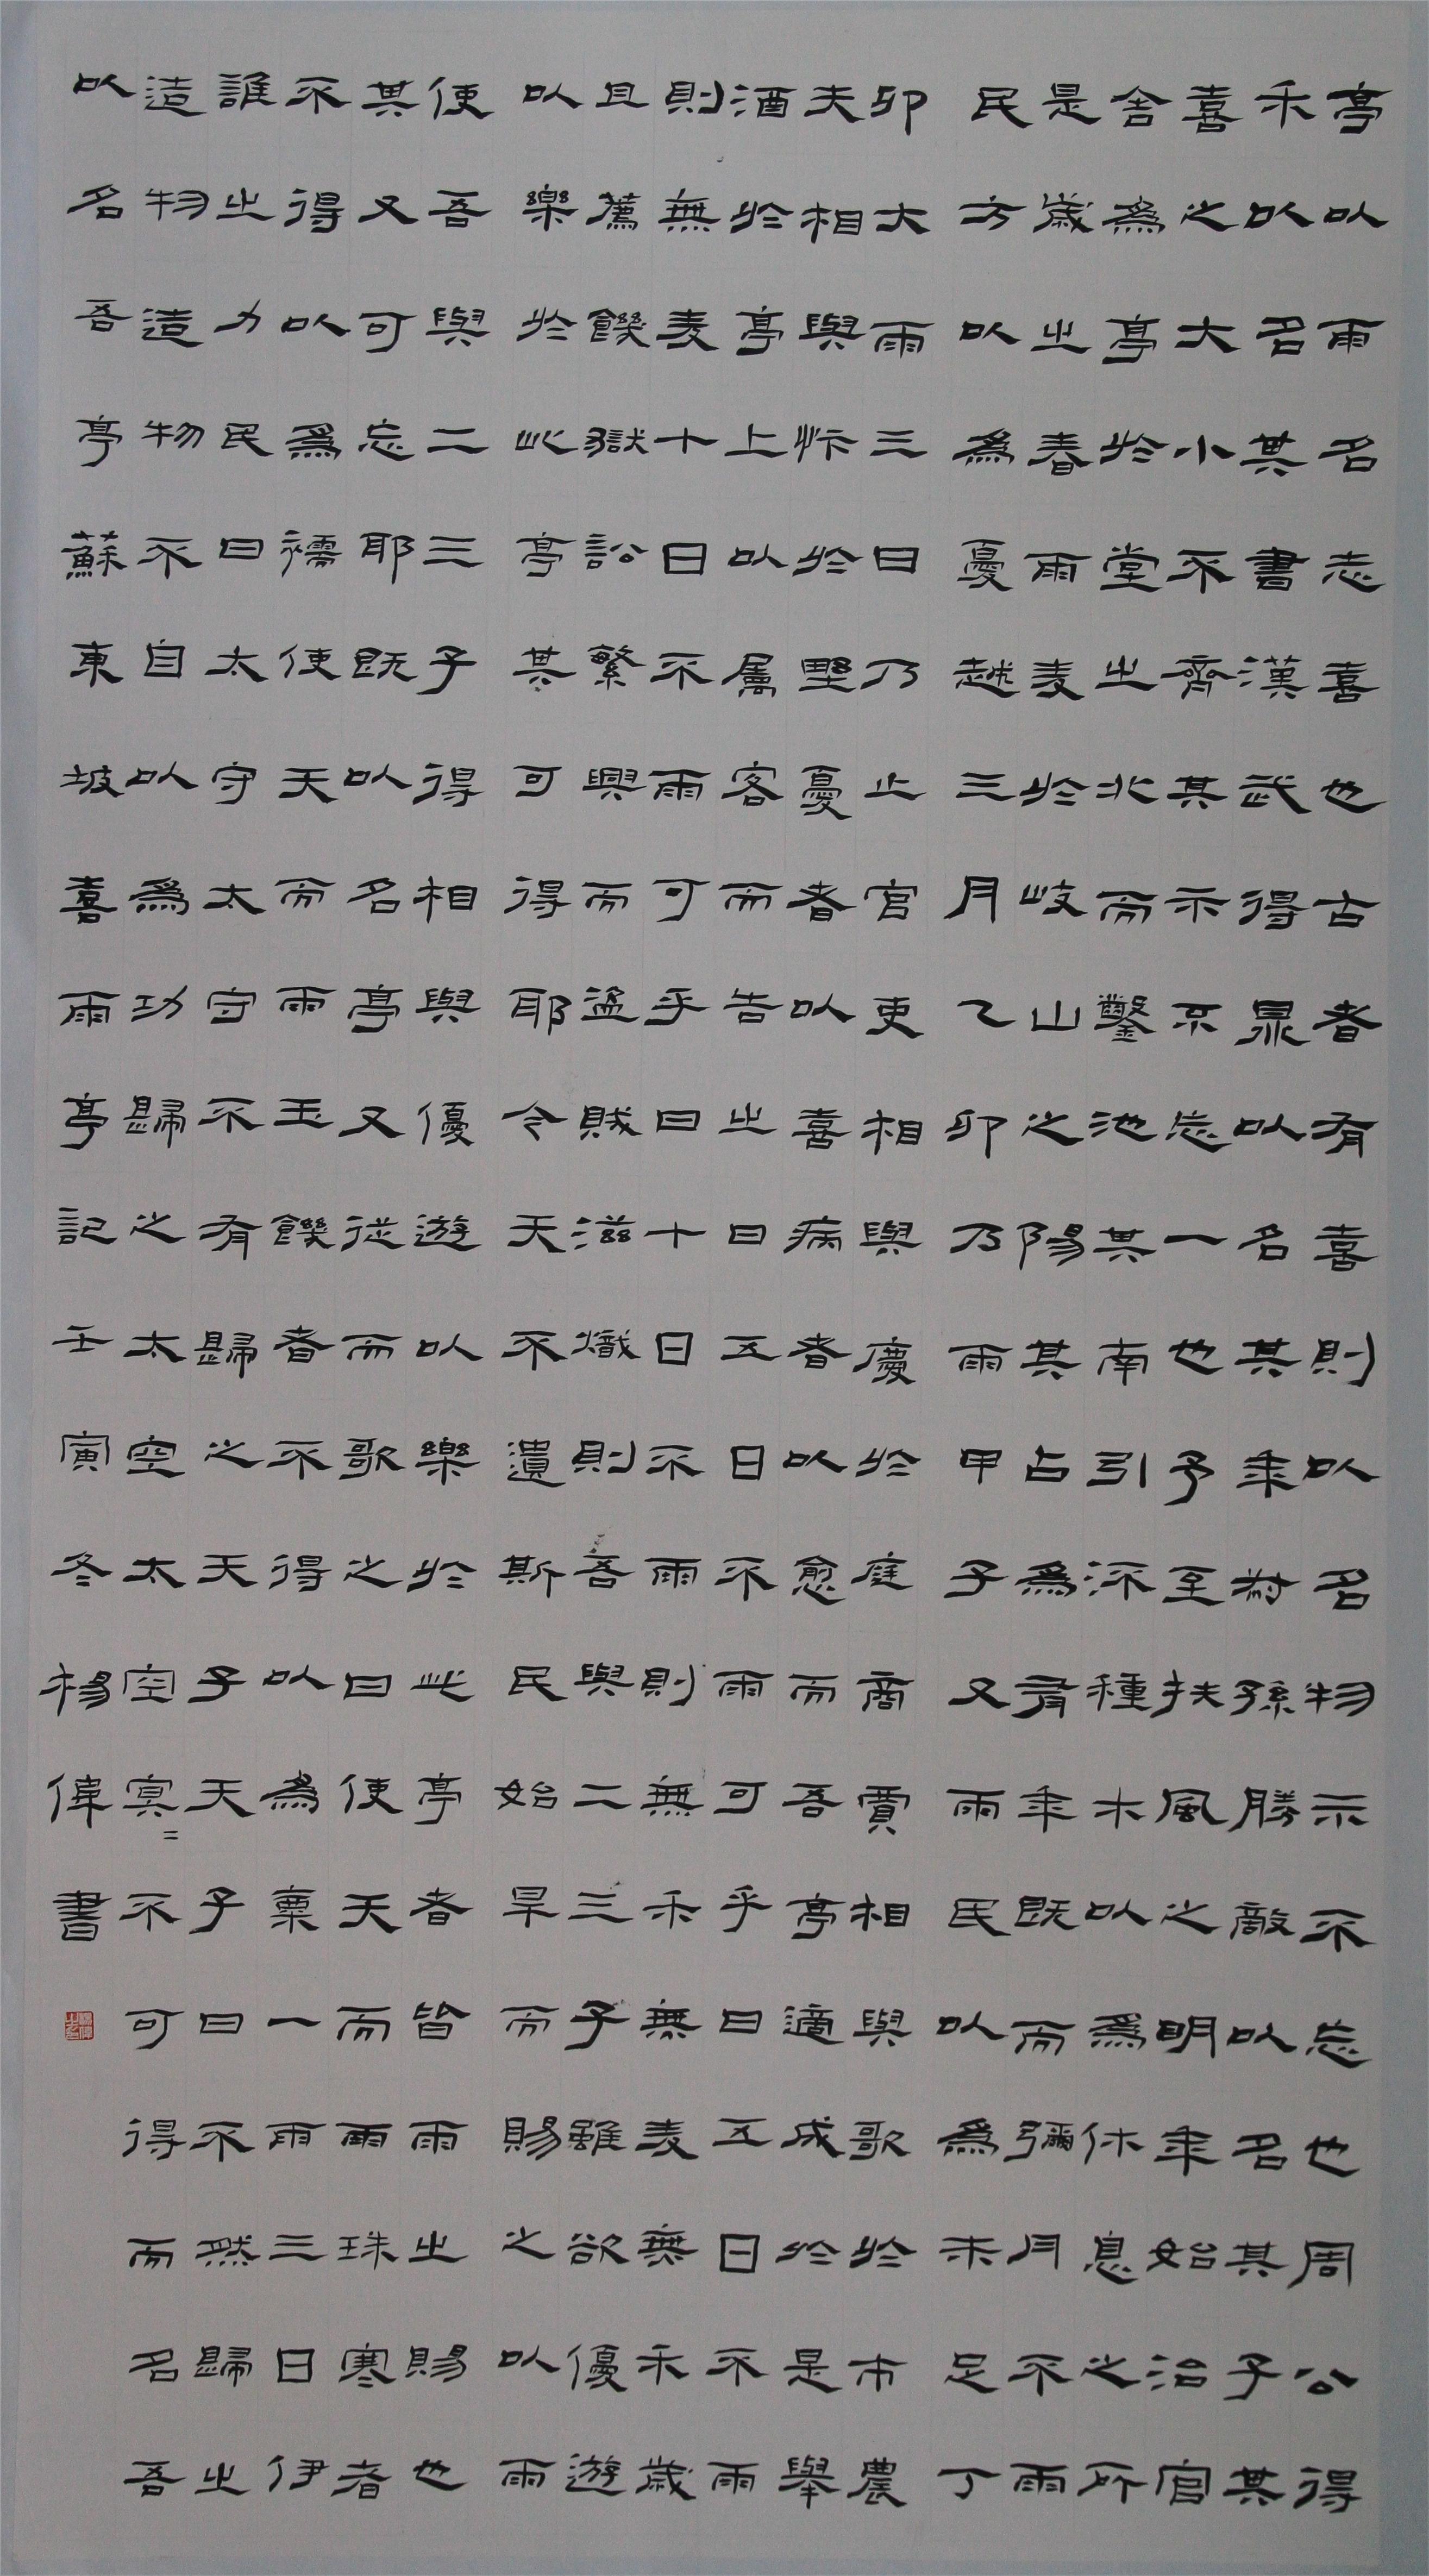 亭以雨名志喜也古者有喜則以名物示不忘也周公得
禾以名其書漢武得鼎以名其年叔孫勝敵以名其子其
喜之大小不齊其示不忘一也予至扶風之明年始治官
舍為亭於堂之北而鑿池其南引流種木以為休息之所
是歲之春雨麦於岐山之陽其占為有年既而彌月不雨
民方以為憂越三月乙卯乃雨甲子又雨民以為未足丁
卯大雨三日乃止官吏相與慶於庭商賈相與歌於市農
夫相與忭於野憂者以喜病者以愈而吾亭適成於是舉
酒於亭上以属客而告之曰五日不雨可乎曰五日不雨
則無麦十日不雨可乎曰十日不雨則無禾無麦無禾歲
且薦饑獄訟繁興而盜賊滋熾則吾與二三子雖欲優遊
以樂於此亭其可得耶今天不遺斯民始旱而賜之以雨
使吾與二三子得相與優遊以樂於此亭者皆雨之賜也
其又可忘耶既以名亭又從而歌之曰使天而雨珠寒者
不得以為襦使天而雨玉饑者不得以為粟一雨三日伊
誰之力民曰太守太守不有歸之天子天子曰不然歸之
造物造物不自以為功歸之太空太空冥=不可得而名吾
以名吾亭蘇東坡喜雨亭記壬寅冬楊偉書